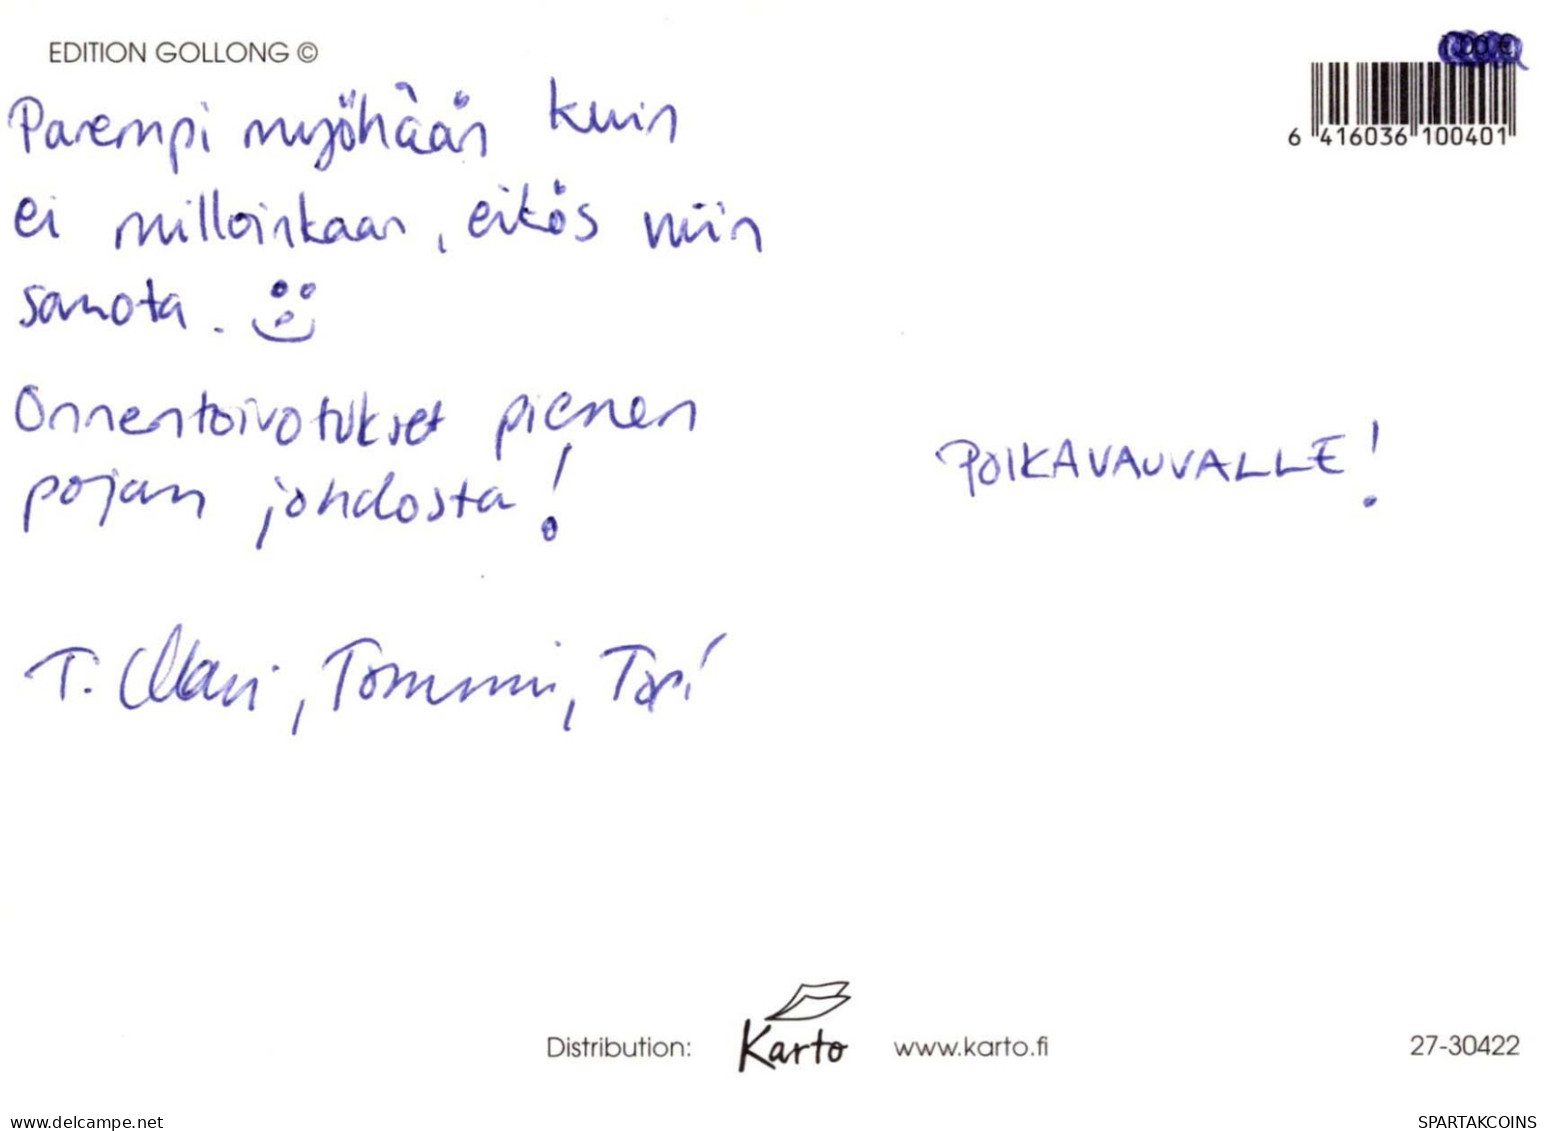 EDITION GOLLONG ©
Parempi myöhään kuin
ei milloinkaan, eikös niin
sanota.
Onnentoivotukset pienen
pojan johdosta!
T. Mari, Tommi, Topi
POIKAVAUVALLE!
6 416036 100401
Distribution: Karto www.karto.fi 27-30422
delcampe.net
SPARTAKCOINS